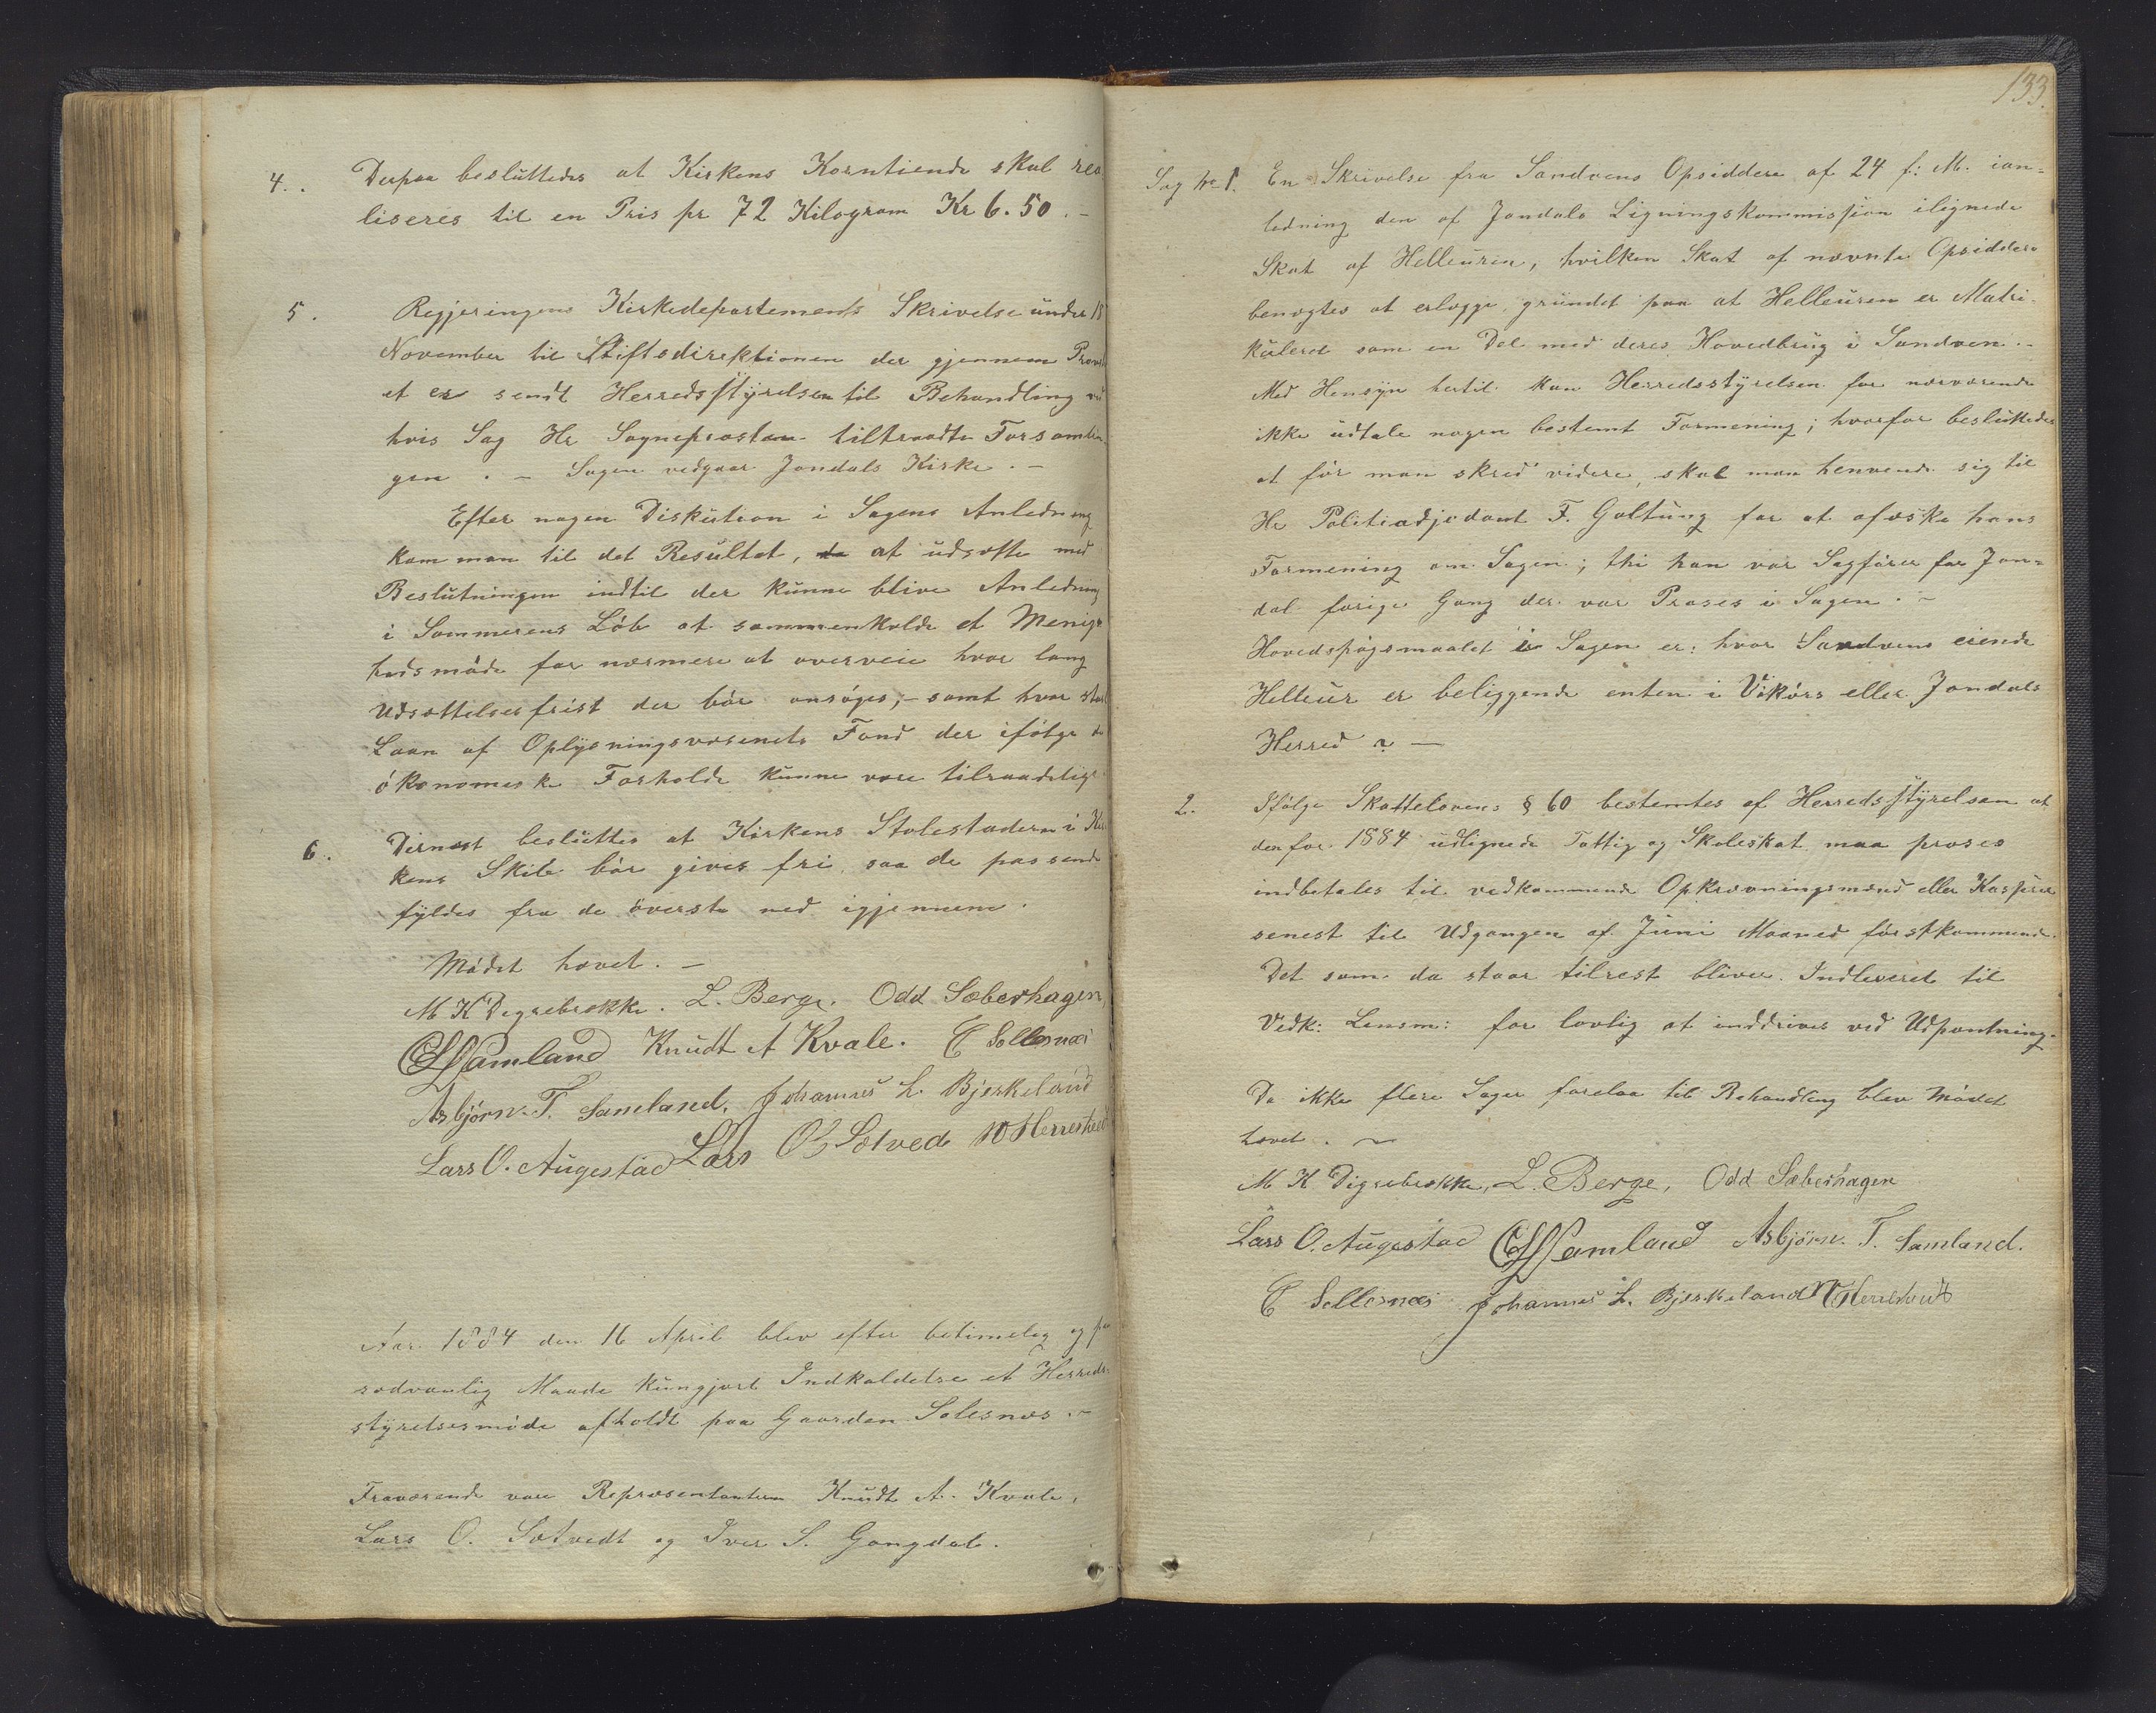 4. Derpaa besluttedes at Kirkens Korntiende skal rea
liseres til en Pris pr 72 Kilogram Kr 6.50.-
5. Regjeringens Kirkedepartements Skrivelse under 18
November til Stiftsdirektionen der gjennem Provst
et er sendt Herredsstyrelsen til Behandling ved
hvis Sag Hr Sognepræsten tiltraadte Forsamlin
gen. - Sagen vedgaar Jondals Kirke. -
Efter nogen Diskution i Sagens Anledning
kom man til det Resultat, at udsætte med
Beslutningen indtil der kunne blive Anledning
i Sommerens Löb at sammenkalde et Menig
hedsmöde for nærmere at overveie hvor lang
Udsættelsesfrist der bör ansöges; - samt hvor stort
Laan af Oplysningsvæsenets Fond der ifölge de
ökonomiske Forholde kunne være tilraadelige
6. Dernæst besluttes at Kirkens Stolestadern i Kir
kens Skib bör gives fri, saa de passende
fyldes fra de överste ned igjennem.
Mödet hævet. -
M K Digrebrekke. L. Berge. Odd Sæberhagen,
Samland Knudt A Kvale. C Sollesnæs
Asbjörn. T. Samland, Johannes L. Bjerkeland
Lars O. Augestad Lars O Sætved Herrestvedt
Aar 1884 den 16 April blev efter betimelig og paa
sædvanlig Maade kungjort Indkaldelse et Herreds-
styrelsesmöde afholdt paa Gaarden Solesnæs. -
Fraværende vare Repræsentanterne Knudt A. Kvale,
Lars O. Sætvedt og Iver S. Gangdal.
133.
Sag No 1. En Skrivelse fra Sandvens Opsiddere af 24 f: M. ian=
ledning den af Jondals Ligningskommission ilignede
Skat af Helleuren, hvilken Skat af nævnte Opsiddere
benægtes at erlægge, grundet paa at Helleuren er Matri-
kuleret som en Del med deres Hovedbrug i Sandven. -
Med Hensyn hertil kan Herredsstyrelsen for nærværende
ikke udtale nogen bestemt Formening; hvorfor besluttedes
at för man skred videre, skal man henvende sig til
Hr Politiadjudant F. Galtung for at afæske hans
Formening om Sagen; thi han var Sagförer for Jon=
dal forige Gang der var Proses i Sagen. -
Hovedspögsmaalet i Sagen er: hvor Sandvens eiende
Helleur er beliggende enten i Vikörs eller Jondals
Herred ? -
2. Ifölge Skattelovens § 60 bestemtes af Herredsstyrelsen at
den for 1884 udlignede Fattig og Skoleskat maa præses
indbetales til vedkommende Opkrævningsmænd eller Kasserer
senest til Udgangen af Juni Maaned förstkommende.
Det som da staar tilrest bliver Indleveret til
Vedk: Lensm: for lovlig at inddrives ved Udpantning.
Da ikke flere Sager forelaa til Behandling blev Mödet
hævet. -
M K Digrebrekke, L. Berge, Odd Sæberhagen
Lars O. Augestad Samland Asbjörn. T. Samland.
C Sollesnæs Johannes L. Bjerkeland Herrestvedt